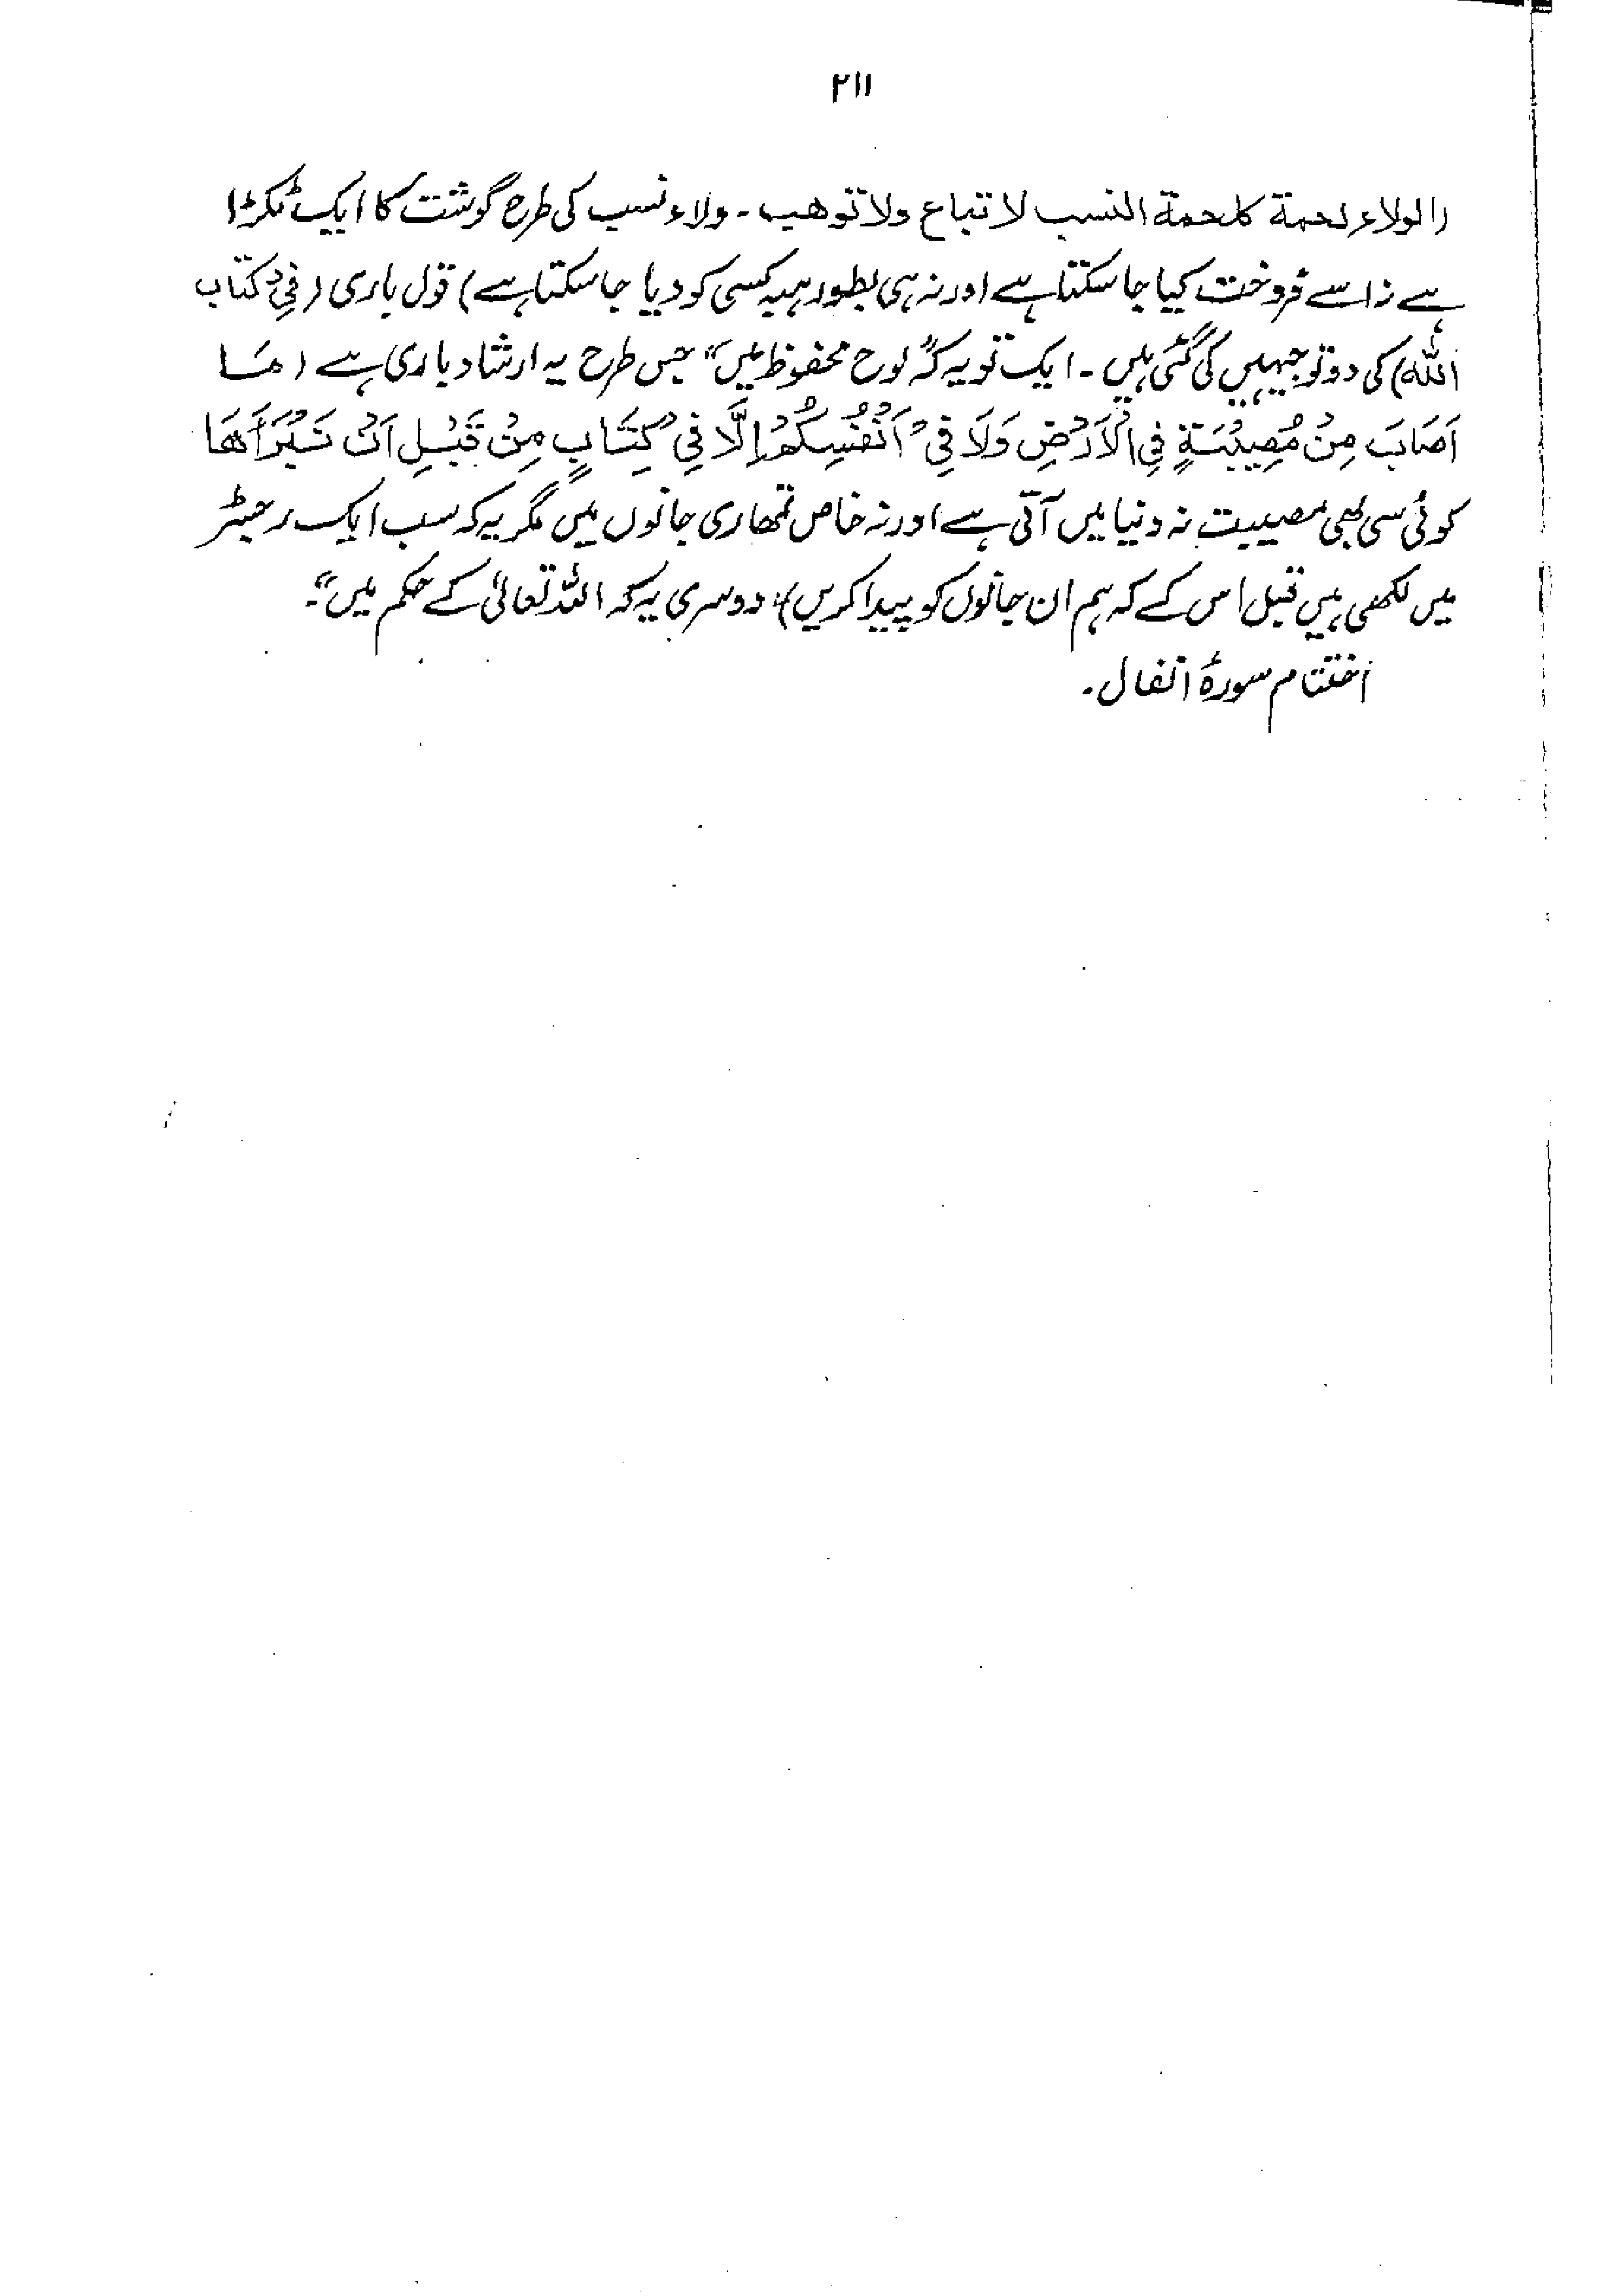 ۲۱۱
(الولاء لحمة كلحمة النسب لا تباع ولا توهب ۔ ولاء نسب کی طرح گوشت کا ایک ٹکڑا
ہے نہ اسے فروخت کیا جا سکتا ہے اور نہ ہی بطور ہبہ کسی کو دیا جا سکتا ہے) قول باری (فِیْ کتاب
اللہ) کی دو توجیہیں کی گئی ہیں ۔ ایک تو یہ کہ "لوح محفوظ میں" جس طرح یہ ارشاد باری ہے (مَا
اَصَابَ مِنْ مُصِیْبَةٍ فِی الْاَرْضِ وَلَا فِیْ اَنْفُسِکُمْ اِلَّا فِیْ کِتَابٍ مِنْ قَبْلِ اَنْ نَبْرَأَهَا
کوئی سی بھی مصیبت نہ دنیا میں آتی ہے اور نہ خاص تمھاری جانوں میں مگر یہ کہ سب ایک رجسٹر
میں لکھی ہیں قبل اس کے کہ ہم ان جانوں کو پیدا کریں)، دوسری یہ کہ اللہ تعالیٰ کے حکم میں"۔
اختتام سورۂ انفال ۔